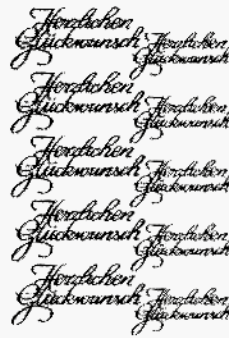 Herzlichen
Glückwunsch
Herzlichen
Glückwunsch
Herzlichen
Glückwunsch
Herzlichen
Glückwunsch
Herzlichen
Glückwunsch
Herzlichen
Glückwunsch
Herzlichen
Glückwunsch
Herzlichen
Glückwunsch
Herzlichen
Glückwunsch
Herzlichen
Glückwunsch